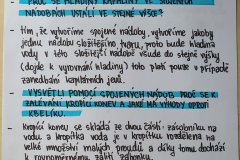 PROČ SE HLADINY KAPALINY VE SPOJENÝCH
NÁDOBÁCH USTÁLÍ VE STEJNÉ VÝŠCE?
- Tím, že vytvoříme spojené nádoby, vytvoříme jakoby
jednu nádobu složitějšího tvaru, proto bude hladina
vody v této složitější nádobě všude do stejné výšky
(dojde k vyrovnání hladiny) toto platí pouze v případě
zanedbání kapilárních jevů.
VYSVĚTLI POMOCÍ SPOJENÝCH NÁDOB PROČ SE K
ZALÉVÁNÍ KROPÍCÍ KONEV A JAKÉ MÁ VÝHODY OPROTI
KBELÍKU.
- Kropicí konev se skládá ze dvou částí: zásobníku na
vodu a kropítka voda je v kropítku rozdělena do
velké množství malých proudů, a díky tomu dochází
k rovnoměrnému zalití záhonku.